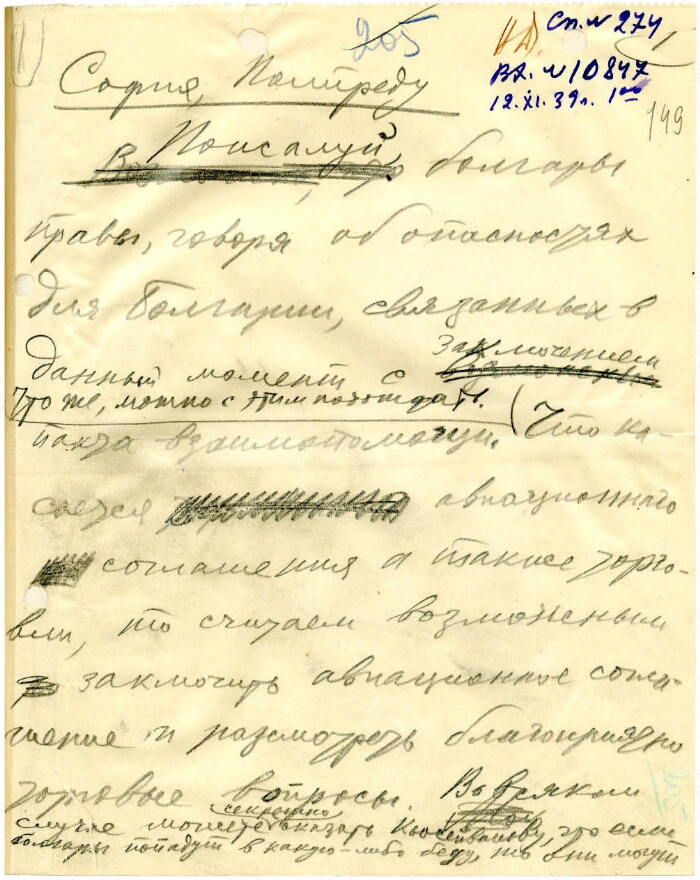 205
НД. Сп. № 274
Вх. № 10847
12.XI.39г. 1 00
1
149
София, Полпреду
Пожалуй,
болгары
правы, говоря об опасностях
для Болгарии, связанных в
заключением
данный момент с
Что же, можно с этим подождать.
пакта взаимопомощи. Что ка-
сается авиационного
соглашения а также торго-
вли, то считаем возможным
заключить авиационное согла-
шение и рассмотреть благоприятно
торговые вопросы. Во всяком
секретно
случае можете сказать Кьосейванову, что если
болгары попадут в какую-либо беду, то они могут
205